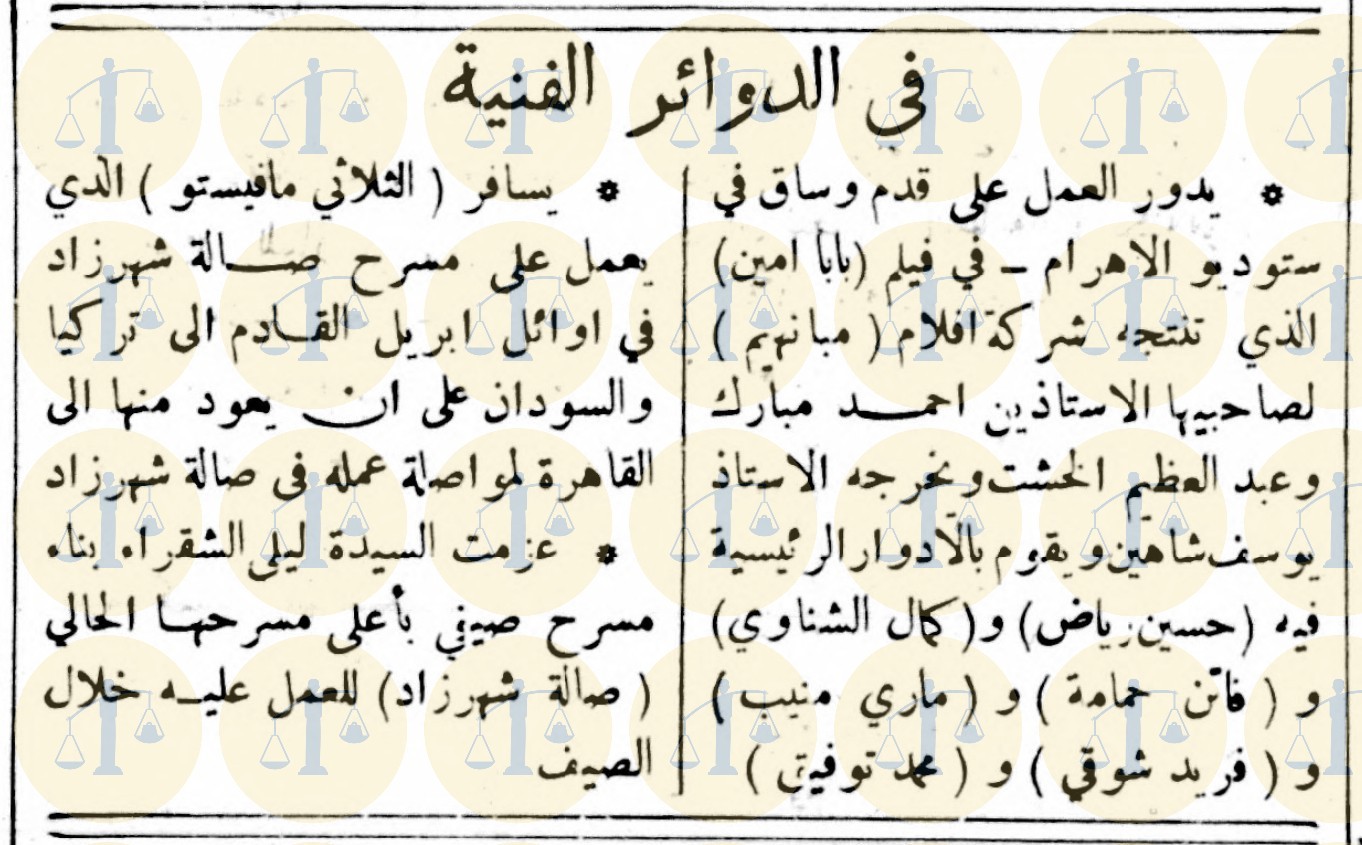 في الدوائر الفنية
* يدور العمل على قدم وساق في
ستوديو الاهرام ـ في فيلم (بابا امين)
الذي تنتجه شركة افلام ( مبانهيم )
لصاحبيها الاستاذين احمـــد مبارك
وعبد العظيم الخشت ونخرجه الاستاذ
يوسف شاهين ويقوم بالأدوار الرئيسية
فيه (حسين رياض) و(كمال الشناوي)
و ( فاتن حمامة ) و ( ماري منيب )
و ( فريد شوقي ) و ( محمد توفيق )
* يسافر ( الثلاثي مافيستو ) الذي
يعمل على مسرح صـــالة شهرزاد
في اوائل ابريل القــادم الى تركيا
والسودان على ان يعود منها الى
القاهرة لمواصلة عمله في صالة شهرزاد
* عزمت السيدة ليلى الشقراء بناء
مسرح صيفي بأعلى مسرحهــا الحالي
( صالة شهرزاد) للعمل عليــه خلال
الصيف